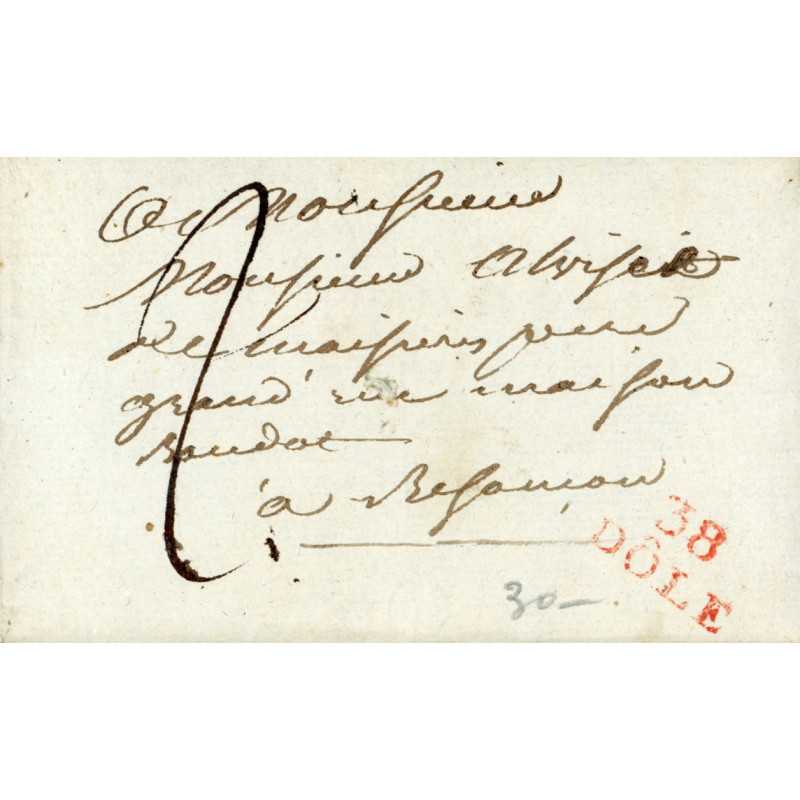 A Monsieur
Monsieur Alviset
de maisieres pere
grand rue maison
à Besançon
38
DÔLE
30 —